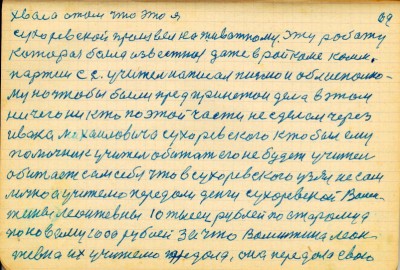 хвала этом что это я 62
сухоревской произвел каживатному. эту работу
которая была известна даже в райкоме комм.
партии с.с. учител написал писмо и облисполко-
му но чтобы были предпринетои дела в этом
ничего ни кто по этой части не сделал через
ивана михаиловича сухоревского кто был ему
помочник учител обижат его не будет учител
обитает сам себя что в сухоревского узял не сам
лично а учителю передали денги сухоревской Вали-
тины леонтевны 10 тисеч рублей по старому а
по новому 1000 рублей за что Валинтина леон-
тевна их учителю предала, она передала свого